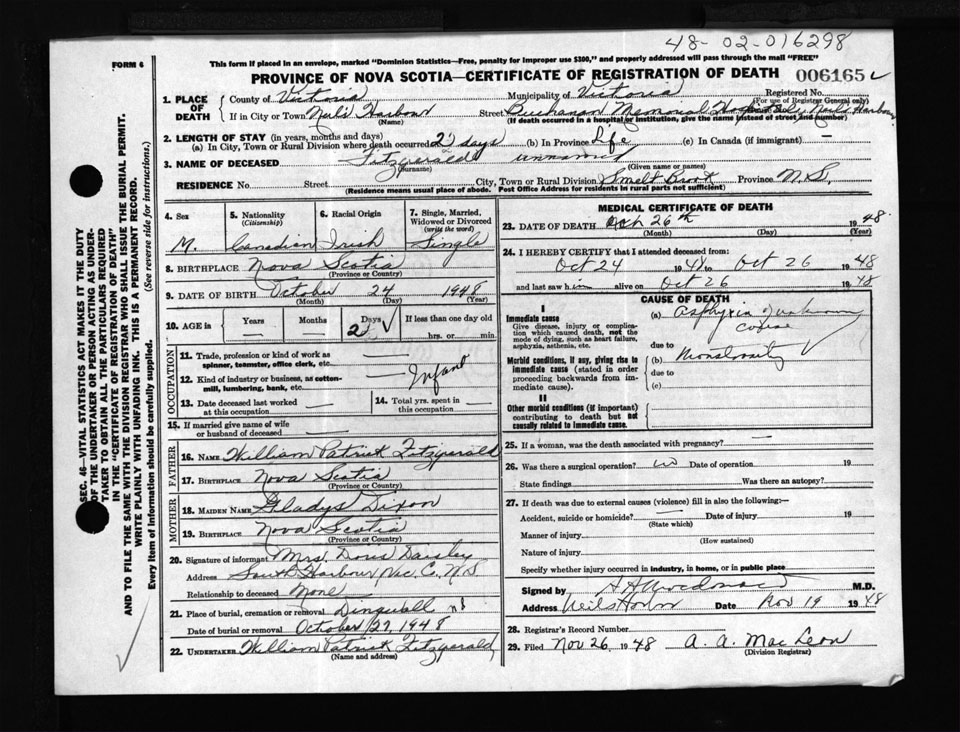 48-02-016298
FORM 6
This form if placed in an envelope, marked "Dominion Statistics—Free, penalty for improper use $300," and properly addressed will pass through the mail "FREE"
PROVINCE OF NOVA SCOTIA—CERTIFICATE OF REGISTRATION OF DEATH 006165
1. PLACE OF DEATH
County of Victoria Municipality of Victoria Registered No.
(For use of Registrar General only)
If in City or Town Neil's Harbour Street Buchanan Memorial Hospital, Neil's Harbour
(Name) (If death occurred in a hospital or institution, give the name instead of street and number)
2. LENGTH OF STAY (in years, months and days)
(a) In City, Town or Rural Division where death occurred 2 days (b) In Province Life (c) In Canada (if immigrant)
3. NAME OF DECEASED Fitzgerald unnamed
(Surname) (Given name or names)
RESIDENCE No. Street City, Town or Rural Division Smelt Brook Province N.S.
(Residence means usual place of abode. Post Office Address for residents in rural parts not sufficient)
4. Sex
M.
5. Nationality
(Citizenship)
Canadian
6. Racial Origin
Irish
7. Single, Married, Widowed or Divorced
(write the word)
Single
8. BIRTHPLACE Nova Scotia
(Province or Country)
9. DATE OF BIRTH October 24 1948
(Month) (Day) (Year)
10. AGE in Years Months Days If less than one day old
2 hrs. or min.
OCCUPATION
11. Trade, profession or kind of work as
spinner, teamster, office clerk, etc.
12. Kind of industry or business, as cotton-
mill, lumbering, bank, etc. Infant
13. Date deceased last worked
at this occupation
14. Total yrs. spent in
this occupation
15. If married give name of wife
or husband of deceased
FATHER
16. NAME William Patrick Fitzgerald
17. BIRTHPLACE Nova Scotia
(Province or Country)
MOTHER
18. MAIDEN NAME Gladys Dixon
19. BIRTHPLACE Nova Scotia
(Province or Country)
20. Signature of informant Mrs. Doris Daisley
Address South Harbour, Vic. C. N.S
Relationship to deceased None
21. Place of burial, cremation or removal Dingwall NS
Date of burial or removal October 27 1948
22. UNDERTAKER William Patrick Fitzgerald
(Name and address)
MEDICAL CERTIFICATE OF DEATH
23. DATE OF DEATH Oct 26th 1948
(Month) (Day) (Year)
24. I HEREBY CERTIFY that I attended deceased from:
Oct 24 1948 to Oct 26 1948
and last saw him alive on Oct 26 1948
CAUSE OF DEATH
I
Immediate cause
Give disease, injury or complica-
tion which caused death, not the
mode of dying, such as heart failure,
asphyxia, asthenia, etc.
(a) Asphyxia unknown
cause
due to
Morbid conditions, if any, giving rise to
immediate cause (stated in order
proceeding backwards from im-
mediate cause).
(b) Monstrosity
due to
(c)
II
Other morbid conditions (if important)
contributing to death but not
causally related to immediate cause.
25. If a woman, was the death associated with pregnancy?
26. Was there a surgical operation? no Date of operation 19
State findings Was there an autopsy?
27. If death was due to external causes (violence) fill in also the following:—
Accident, suicide or homicide? Date of injury 19
(State which)
Manner of injury
(How sustained)
Nature of injury
Specify whether injury occurred in industry, in home, or in public place
Signed by M.D.
Address Neils Harbr Date Nov 19 1948
28. Registrar's Record Number
29. Filed Nov 26 1948 A. A. MacLeon
(Division Registrar)
SEC. 46—VITAL STATISTICS ACT MAKES IT THE DUTY
OF THE UNDERTAKER OR PERSON ACTING AS UNDER-
TAKER TO OBTAIN ALL THE PARTICULARS REQUIRED
IN THE "CERTIFICATE OF REGISTRATION OF DEATH"
AND TO FILE THE SAME WITH THE DIVISION REGISTRAR WHO SHALL ISSUE THE BURIAL PERMIT.
WRITE PLAINLY WITH UNFADING INK. THIS IS A PERMANENT RECORD.
Every item of information should be carefully supplied. (See reverse side for instructions.)